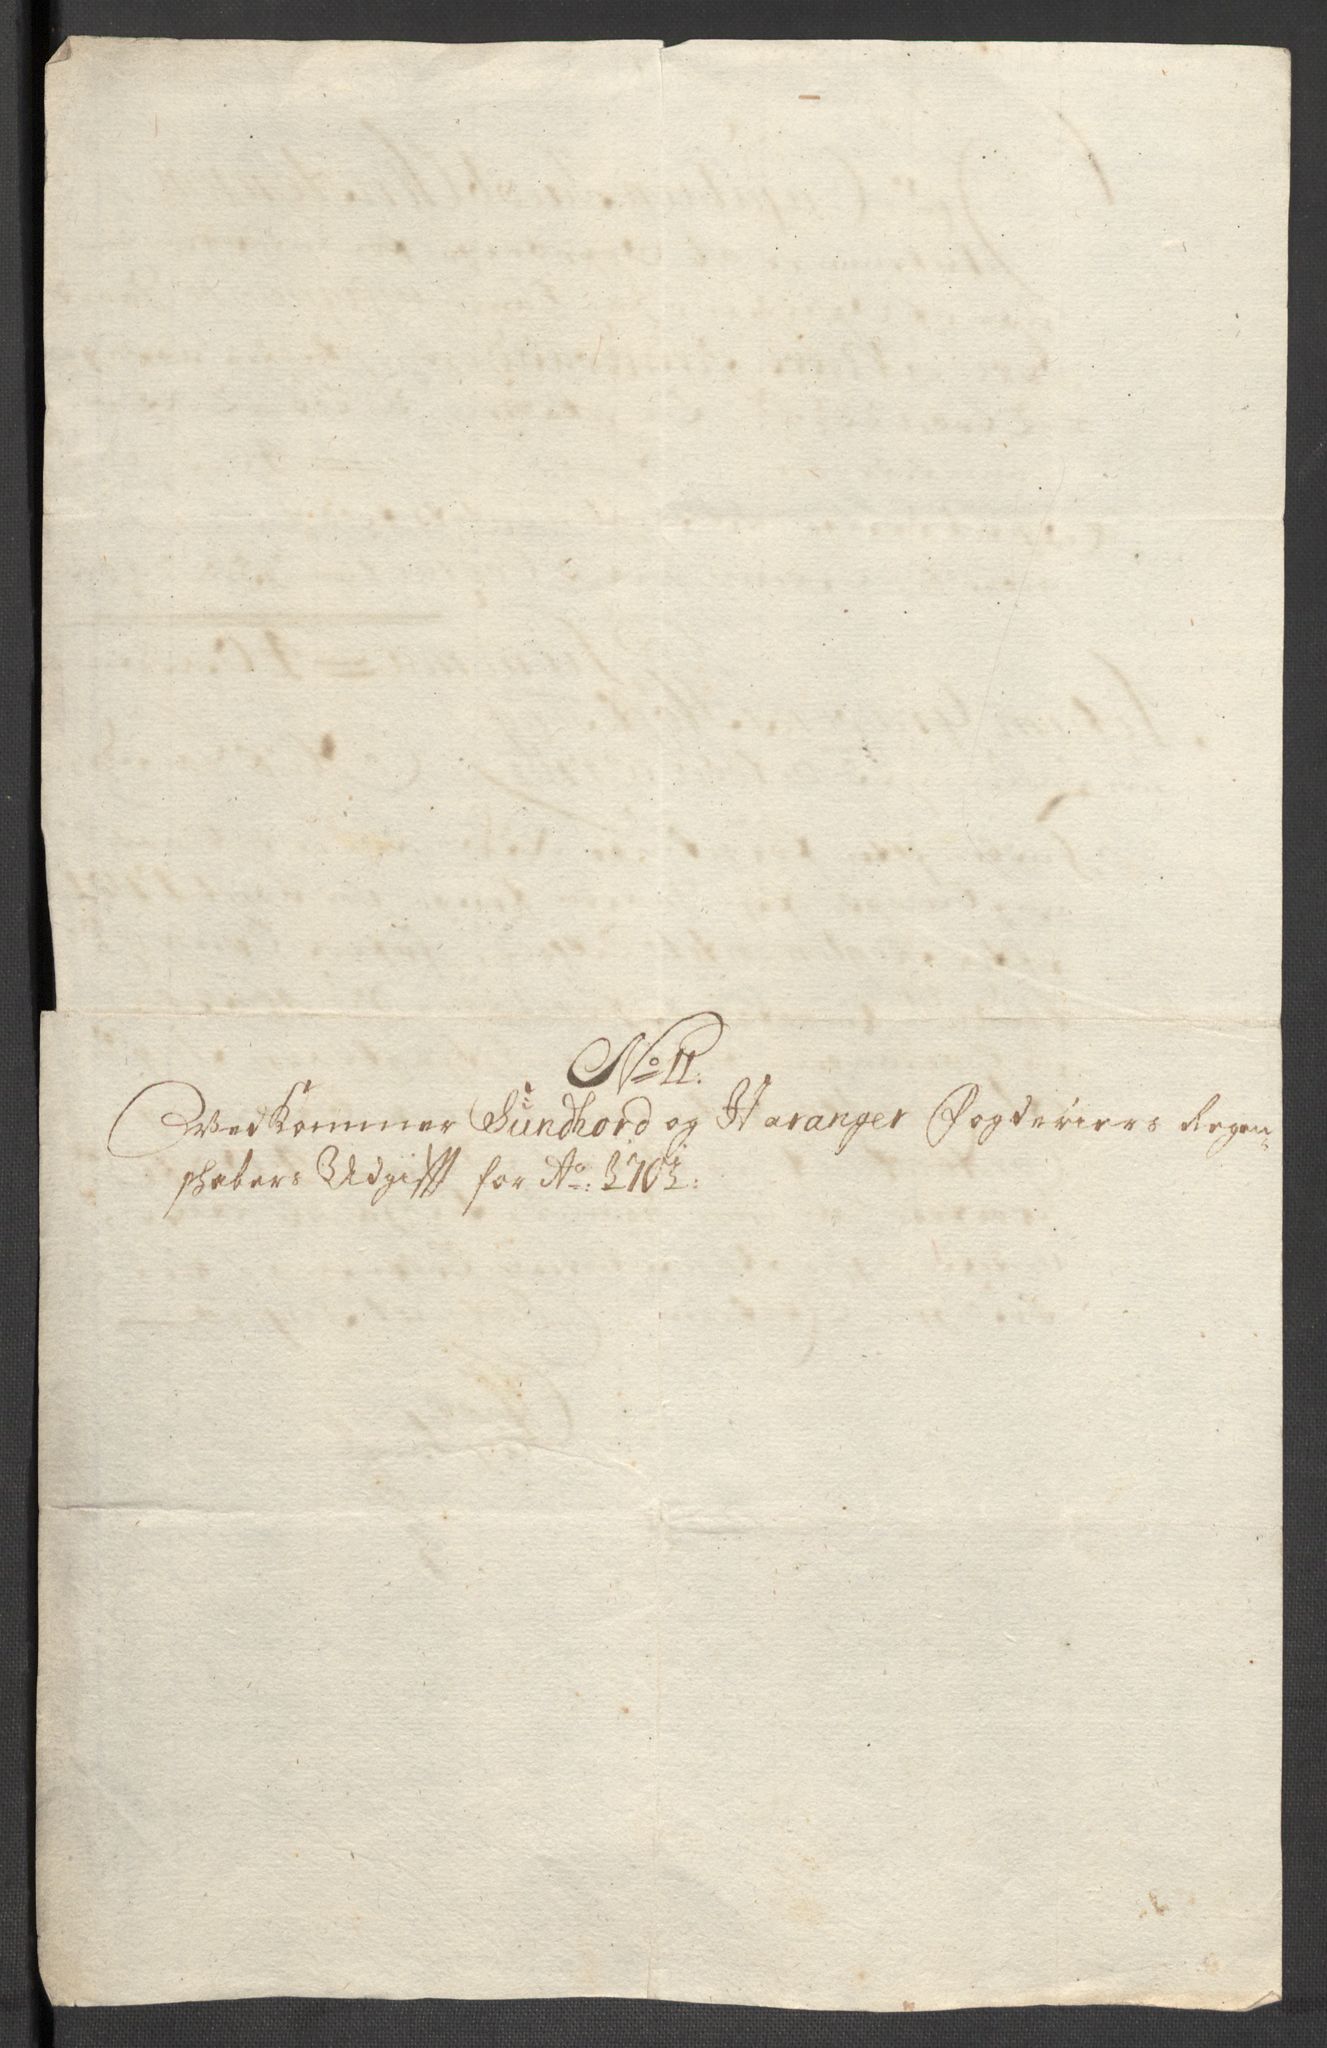 No 11.
Vedkommer Sundhord og Haranger Fogderiers Regen-
skabers Udgifft for Ao: 1701: